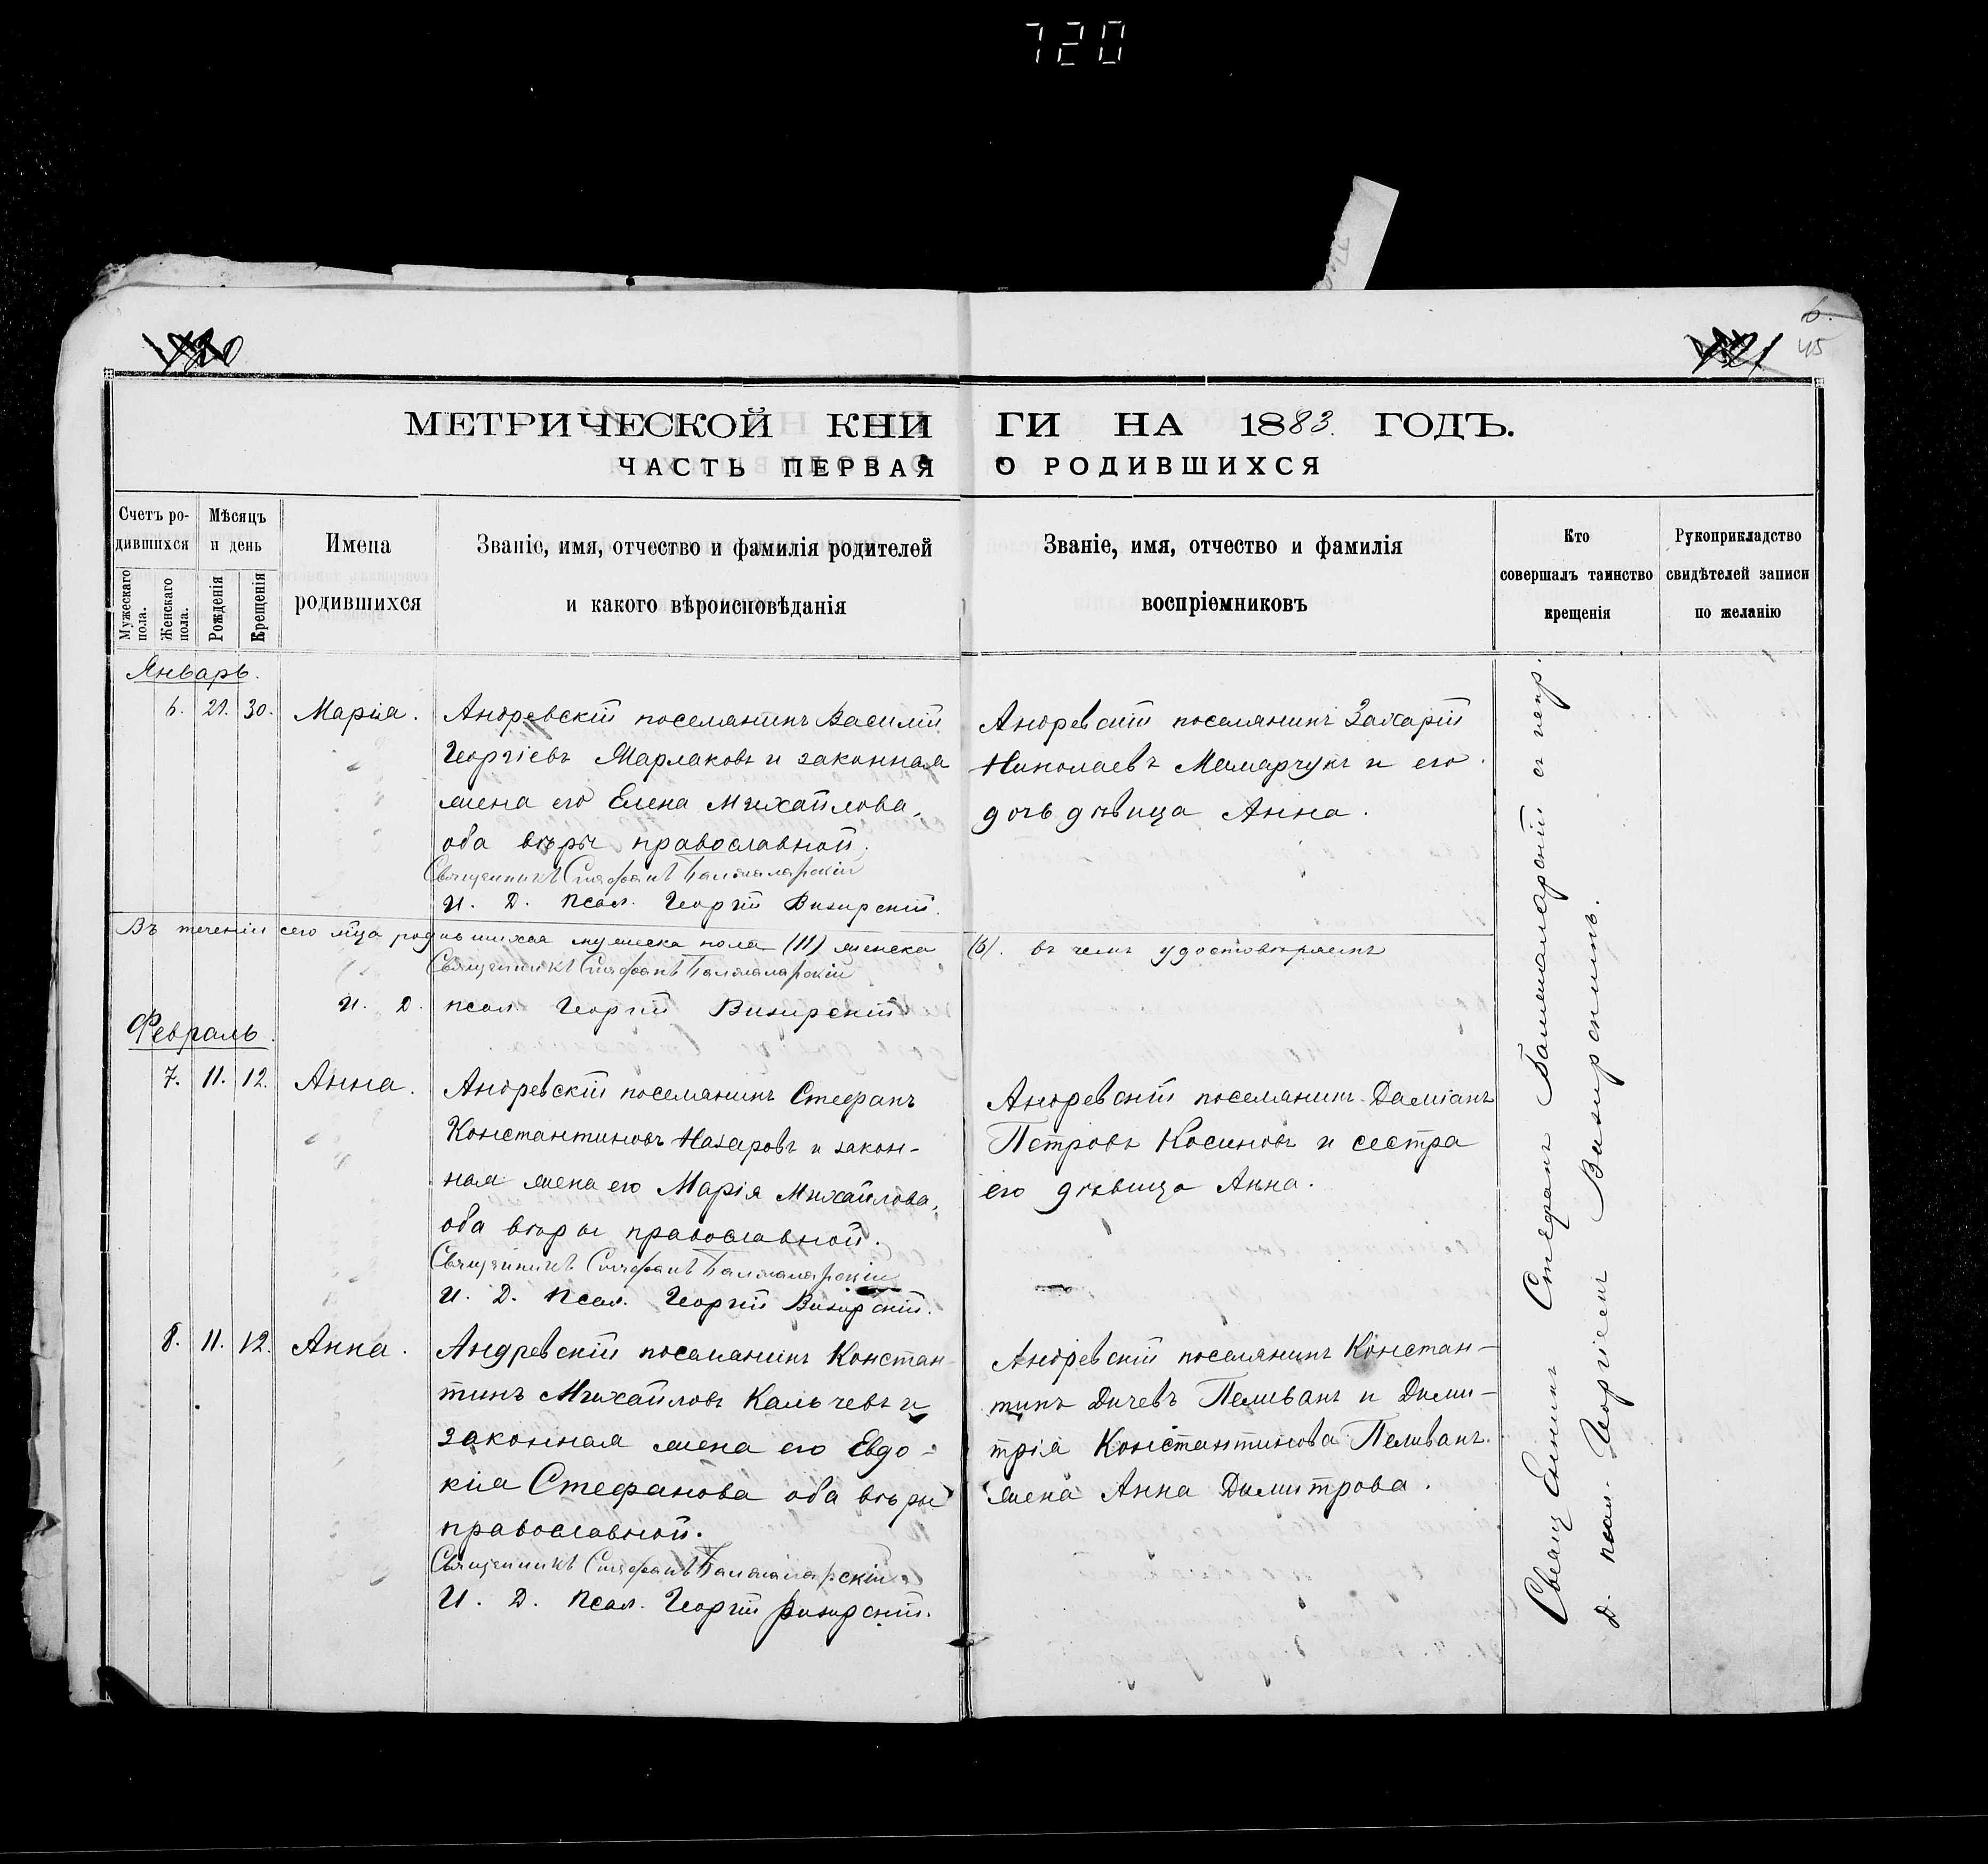 720
6.
45
МЕТРИЧЕСКОЙ КНИГИ НА 1883. ГОДЪ.
ЧАСТЬ ПЕРВАЯ О РОДИВШИХСЯ
Счетъ родившихся
Мужескаго пола.
Женскаго пола.
Мѣсяцъ и день
Рожденія
Крещенія
Имена родившихся
Званіе, имя, отчество и фамилія родителей
и какого вѣроисповѣданія
Званіе, имя, отчество и фамилія
воспріемниковъ
Кто
совершалъ таинство
крещенія
Рукоприкладство
свидѣтелей записи
по желанію
Январь.
6. 29. 30. Марія.
Андревскій поселянинъ Василій
Георгіевъ Марлаковъ и законная
жена его Елена Михайлова,
оба вѣры православной.
Священникъ Стефанъ
И. Д. Псал. Георгій Визирскій.
Андревскій поселянинъ Захарій
Николаевъ Мамарчукъ и его
дочь дѣвица Анна.
Въ теченіи сего мѣца родившихся мужеска пола (11) женска (6). въ чемъ удостовѣряемъ
Священникъ Стефанъ
И. Д. псал. Георгій Визирскій
Февраль.
7. 11. 12. Анна.
Андревскій поселянинъ Стефанъ
Константиновъ Назаровъ и закон-
ная жена его Марія Михайлова,
оба вѣры православной.
Священникъ Стефанъ
И. Д. Псал. Георгій Визирскій.
Андревскій поселянинъ Даміанъ
Петровъ Косиновъ и сестра
его дѣвица Анна.
8. 11. 12. Анна.
Андревскій поселянинъ Констан-
тинъ Михайловъ Кальчевъ и
законная жена его Евдо-
кія Стефанова оба вѣры
православной.
Священникъ Стефанъ
И. Д. Псал. Георгій Визирскій.
Андревскій поселянинъ Констан-
тинъ Дичевъ Пеливанъ и Дими-
трія Константинова Пеливанъ
жена Анна Димитрова.
Священникъ Стефанъ
Д. псал. Георгіемъ Визирскимъ.